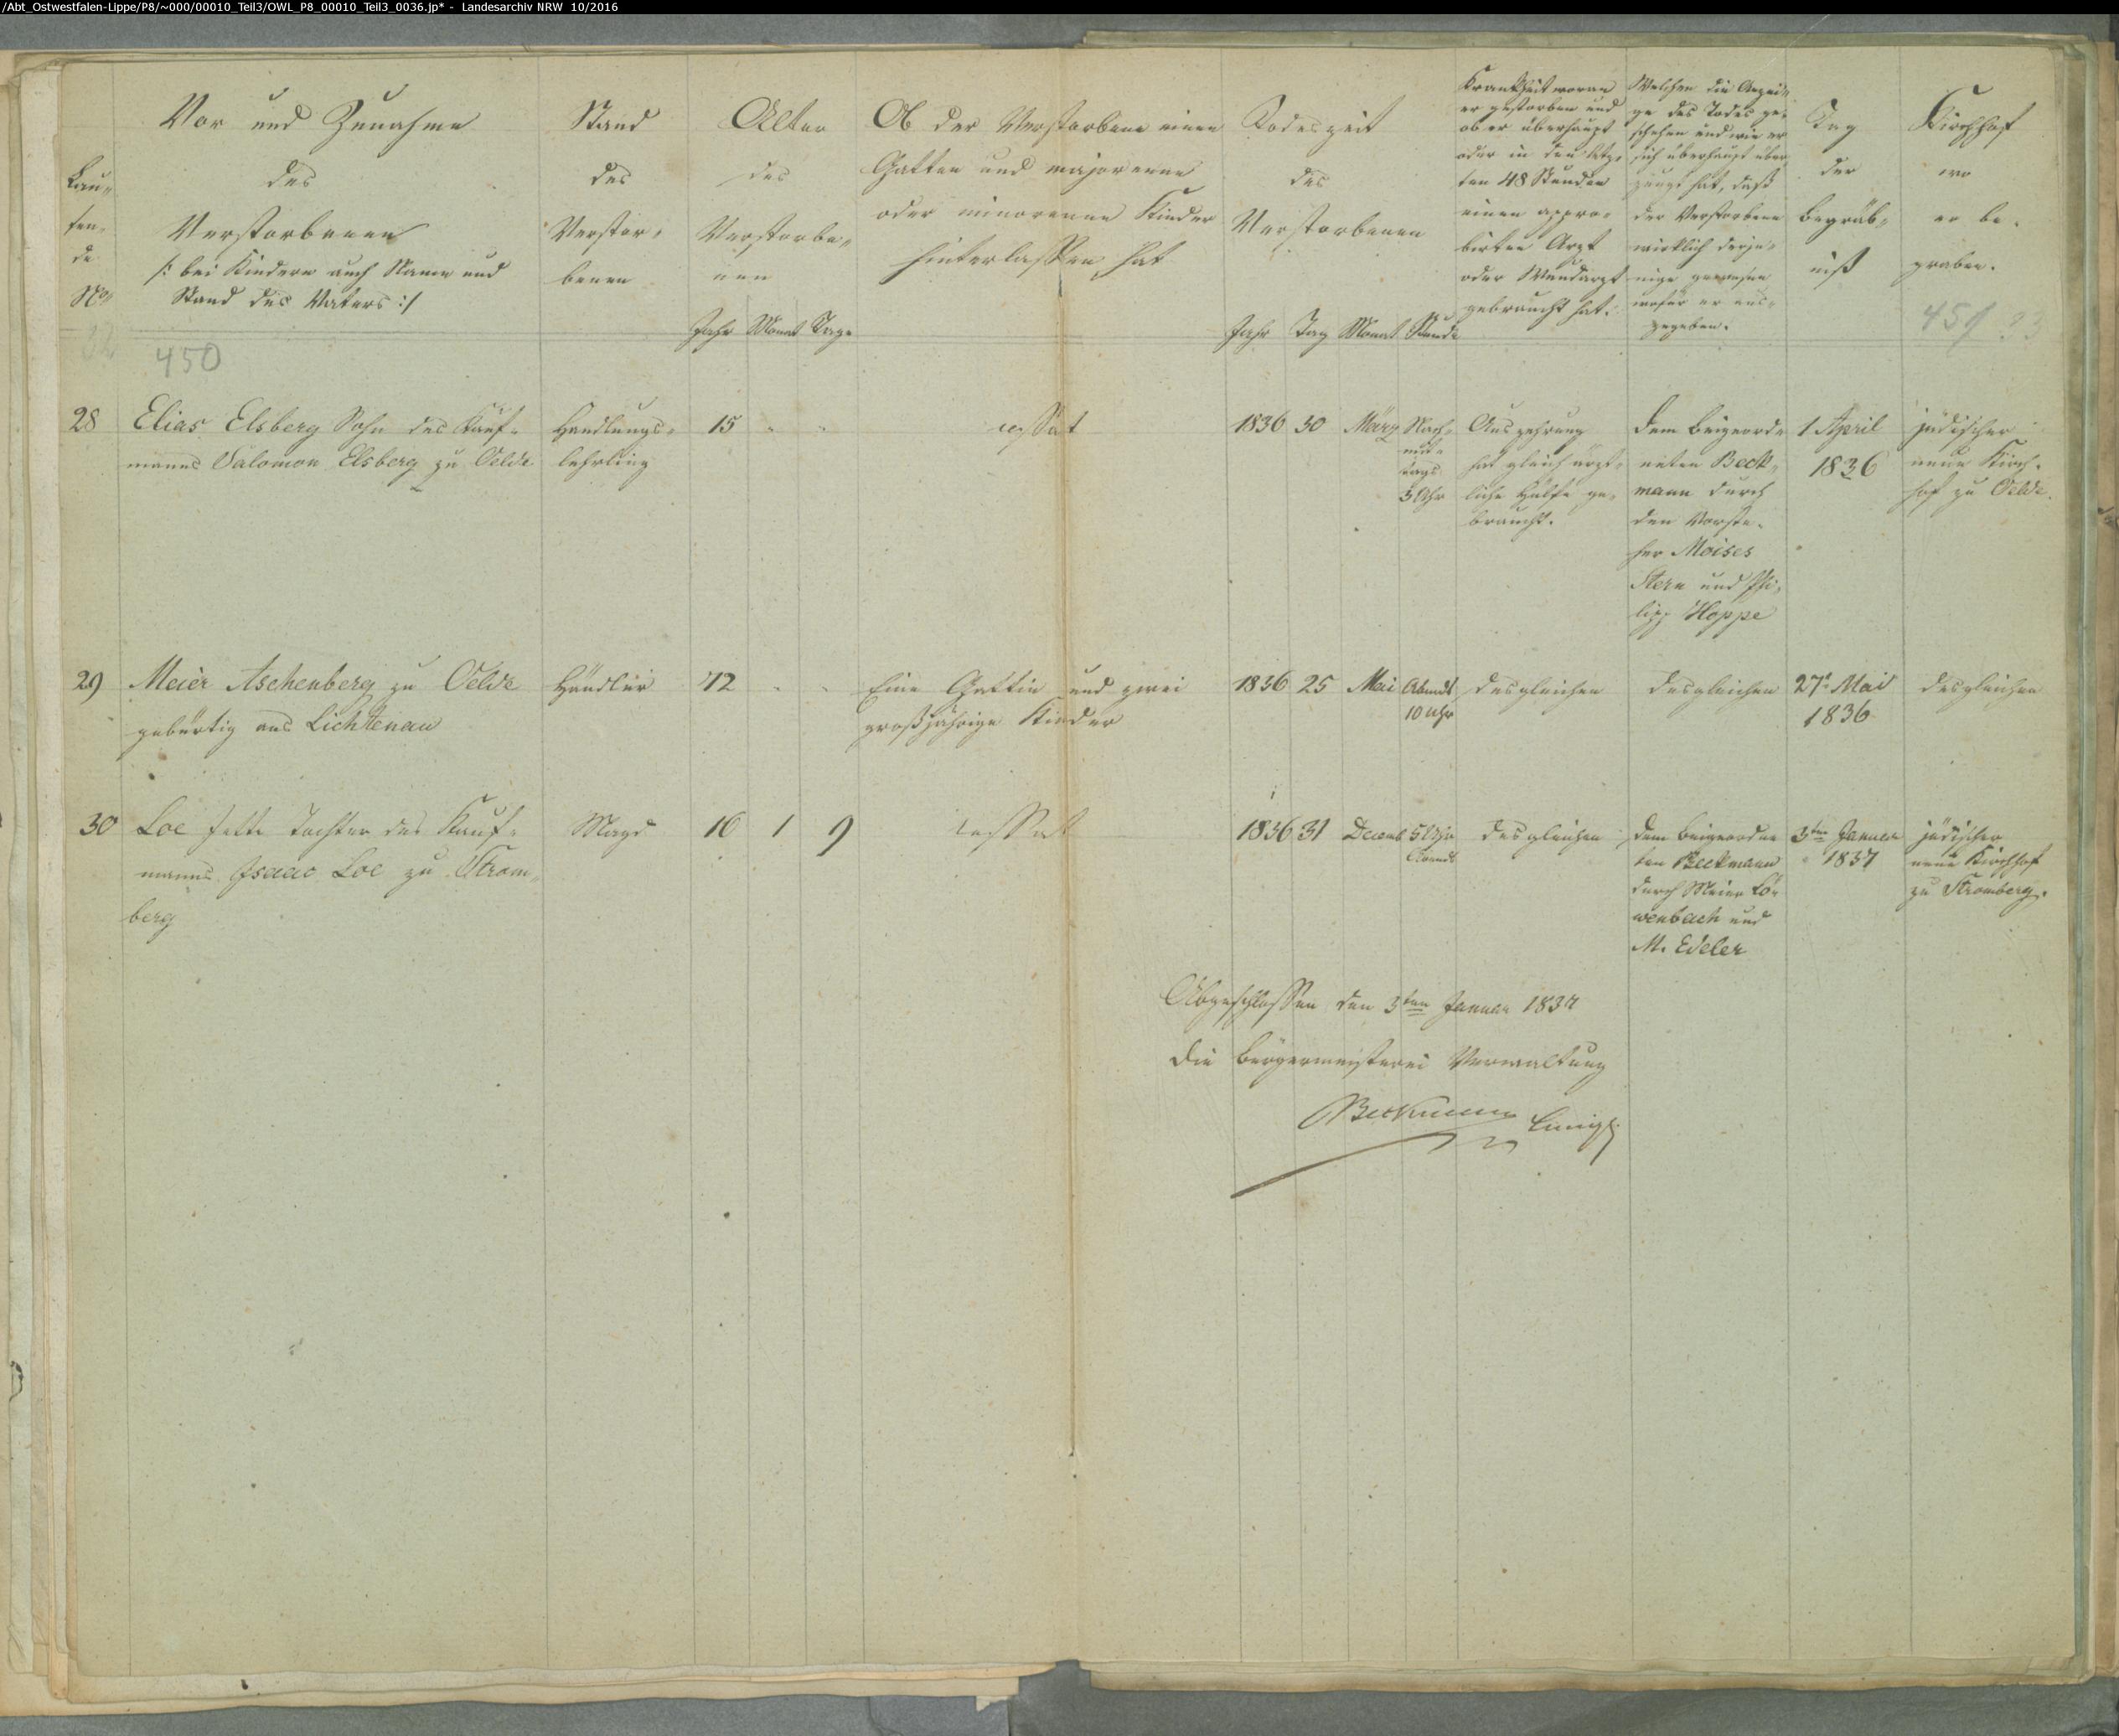 /Abt_Ostwestfalen-Lippe/P8/~000/00010_Teil3/OWL_P8_00010_Teil3_0036.jp* - Landesarchiv NRW 10/2016
Lau-
fen-
de
No
Vor und Zunahme
des
Verstorbenen
/: bei Kindern auch Name und
Stand des Vaters :/
Stand
des
Verstor-
benen
Alter
des
Verstorbe-
nen
Jahr Monat Tage
Ob der Verstorbene einen
Gatten und majorenne
oder minorenne Kinder
hinterlassen hat
Todeszeit
des
Verstorbenen
Jahr Tag Monat Stunde
Krankheit woran
er gestorben und
ob er überhaupt
oder in den letz-
ten 48 Stunden
einen appro-
birten Arzt
oder Wundarzt
gebraucht hat.
Welchen die Anzei-
ge des Todes ge-
schehen und wie er
sich überhaupt über
zeugt hat, daß
der Verstorbene
wirklich derje-
nige gewesen
wofür er aus-
gegeben.
Tag
der
Begräb-
niß
Kirchhof
wo
er be-
graben.
450
451 33
28
Elias Elsberg Sohn des Kauf-
manns Salomon Elsberg zu Oelde
Handlungs-
lehrling
15 " "
cessat
1836 30 März
Nach-
mit-
tags
3 Uhr
Auszehrung
hat gleich ärzt-
liche Hülfe ge-
braucht.
Dem Beigeord-
neten Beck-
mann durch
den Vorste-
her Moises
Stern und Phi-
lipp Hoppe
1 April
1836
jüdischer
neue Kirch-
hof zu Oelde.
29
Meier Aschenberg zu Oelde
gebürtig aus Lichtenau
Händler
72 " "
Eine Gattin und zwei
großjährige Kinder
1836 25 Mai
Abends
10 Uhr
desgleichen
desgleichen
27t Mai
1836
desgleichen
30
Loe Jette Tochter des Kauf-
manns Isaac Loe zu Strom-
berg
Magd
16 1 9
cessat
1836 31 Decemb
5 Uhr
Abends
desgleichen
dem Beigeordne
ten Beckmann
durch Meier Lö-
wenbach und
M. Edeler
3ten Januar
1837
jüdischer
neue Kirchhof
zu Stromberg.
Abgeschlossen den 3ten Januar 1837
Die Bürgermeisterei Verwaltung
Beckmann